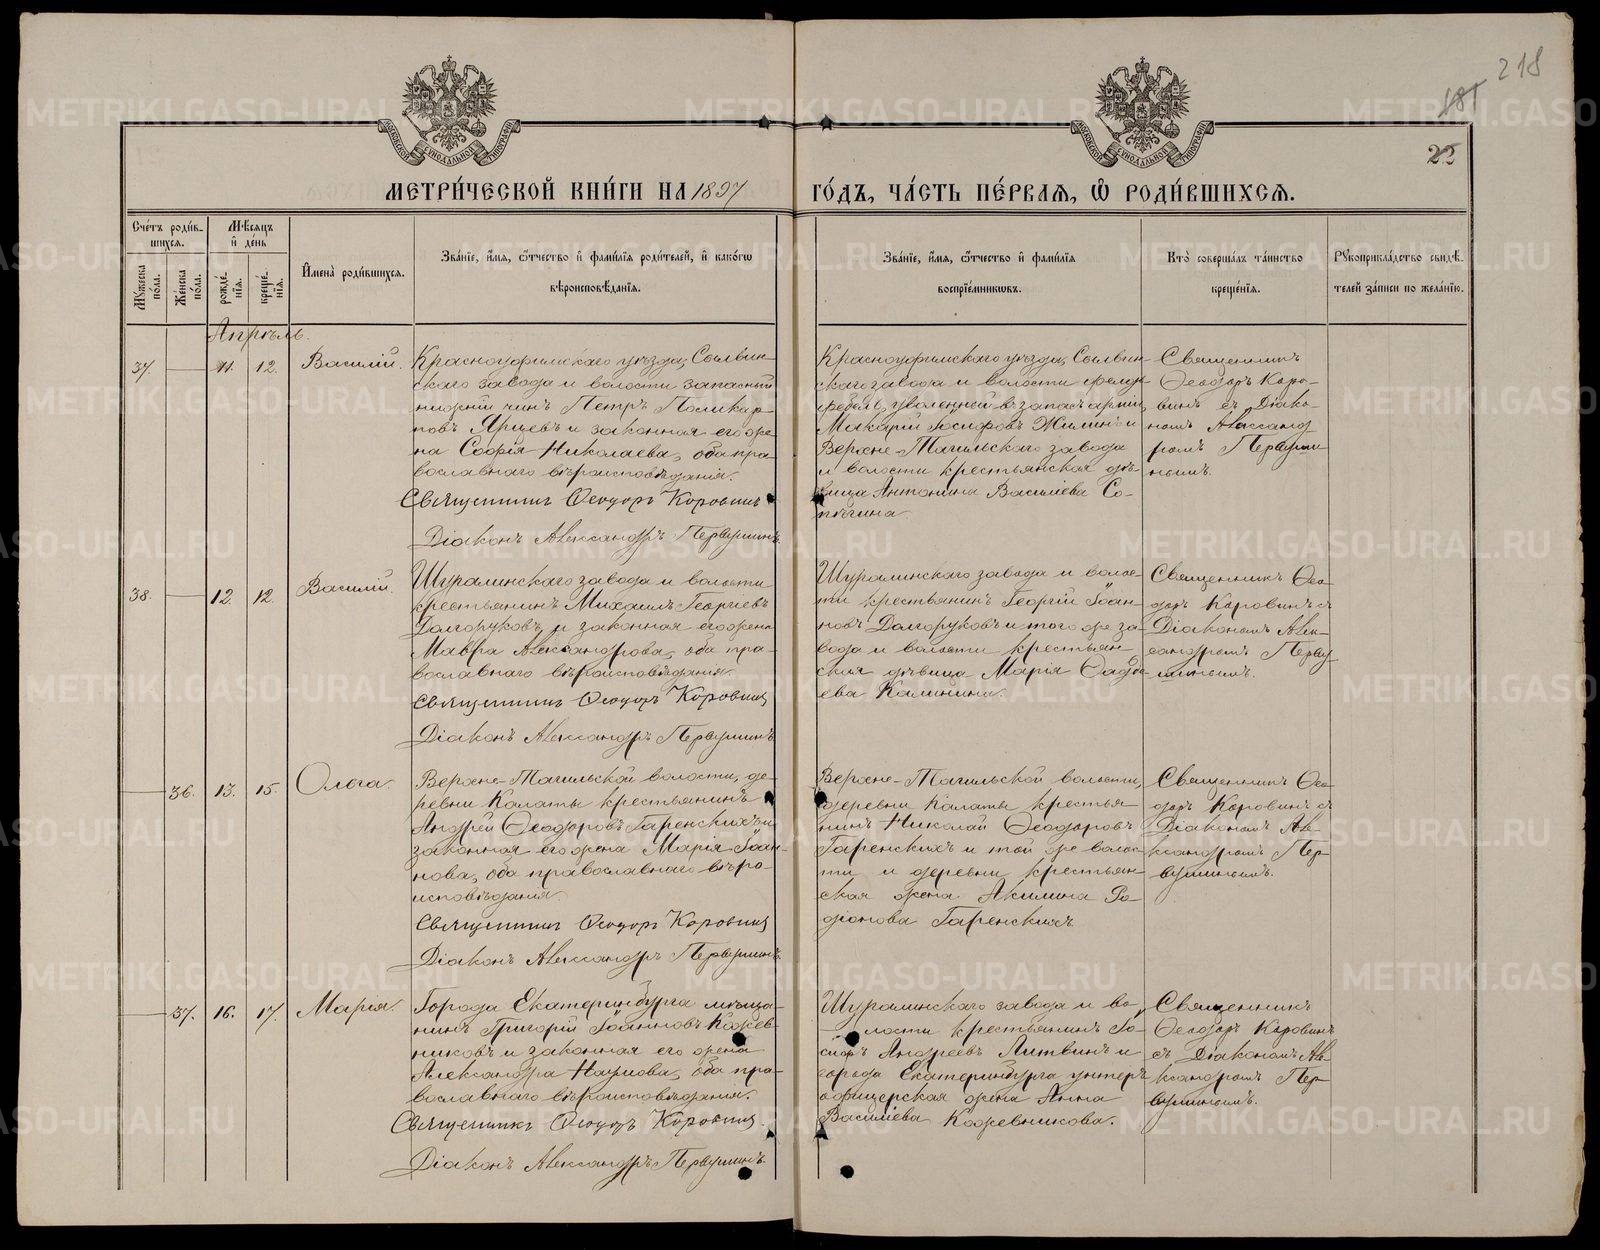 218
181
22
МОСКОВСКОЙ СѴНОДАЛЬНОЙ ТИПОГРАФІИ
МОСКОВСКОЙ СѴНОДАЛЬНОЙ ТИПОГРАФІИ
МЕТРИ́ЧЕСКОЙ КНИ́ГИ НА 1897 ГО́ДЪ, ЧА́СТЬ ПЕ́РВАѦ, Ѽ РОДИ́ВШИХСѦ.
Сче́тъ роди́в-
шихсѧ.
Мꙋжеска по́ла.
Же́нска по́ла.
Мѣ́сѧцъ
и҆ де́нь
рожде́-
нїѧ.
креще́-
нїѧ.
И҆мена̀ роди́вшихсѧ.
Зва́нїе, и҆́мѧ, ѻ҆́тчество и҆ фами́лїѧ роди́телей, и҆ како́гѡ
вѣроисповѣ́данїѧ.
Зва́нїе, и҆́мѧ, ѻ҆́тчество и҆ фами́лїѧ
воспрїе́мникѡвъ.
Кто̀ соверша́лъ та́инство
креще́нїѧ.
Рꙋкоприкла́дство свидѣ́-
телей за́писи по жела́нїю.
Апрѣль.
37. 11. 12. Василій.
Красноуфимскаго уѣзда, Сылвин-
скаго завода и волости запасный
нижній чинъ Петръ Поликар-
повъ Ярцевъ и законная его же-
на Софія Николаева, оба пра-
вославнаго вѣроисповѣданія.
Священникъ Ѳеодоръ Коровинъ
Діаконъ Александръ Первушинъ.
Красноуфимскаго уѣзда, Сылвин-
скаго завода и волости фельд-
фебель, уволенный въ запасъ арміи,
Макарій Іосифовъ Жилинъ и
Верхне-Тагильскаго завода
и волости крестьянская дѣ-
вица Антонина Василіева Со-
пѣгина.
Священникъ
Ѳеодоръ Коро-
винъ съ Діако-
номъ Александ-
ромъ Первуши-
нымъ.
38. 12. 12. Василій.
Шуралинскаго завода и волости
крестьянинъ Михаилъ Георгіевъ
Долгоруковъ и законная его жена
Мавра Александрова, оба пра-
вославнаго вѣроисповѣданія.
Священникъ Ѳеодоръ Коровинъ
Діаконъ Александръ Первушинъ.
Шуралинскаго завода и волос-
ти крестьянинъ Георгій Іоан-
новъ Долгоруковъ и того же за-
вода и волости крестьян-
ская дѣвица Марія Ѳадѣ-
ева Калинина.
Священникъ Ѳео-
доръ Коровинъ съ
Діакономъ Алек-
сандромъ Перву-
шинымъ.
36. 13. 15. Ольга.
Верхне-Тагильской волости, де-
ревни Калаты крестьянинъ
Андрей Ѳеодоровъ Гаренскихъ и
законная его жена Марія Іоан-
нова, оба православнаго вѣро-
исповѣданія.
Священникъ Ѳеодоръ Коровинъ
Діаконъ Александръ Первушинъ.
Верхне-Тагильской волости,
деревни Калаты крестья-
нинъ Николай Ѳеодоровъ
Гаренскихъ и той же волос-
ти и деревни крестьян-
ская жена Акилина Ро-
діонова Гаренскихъ.
Священникъ Ѳео-
доръ Коровинъ съ
Діакономъ Але-
ксандромъ Пер-
вушинымъ.
37. 16. 17. Марія.
Города Екатеринбурга мѣща-
нинъ Григорій Іоанновъ Кожев-
никовъ и законная его жена
Александра Наумова, оба пра-
вославнаго вѣроисповѣданія.
Священникъ Ѳеодоръ Коровинъ.
Діаконъ Александръ Первушинъ.
Шуралинскаго завода и во-
лости крестьянинъ Іо-
сифъ Андреевъ Литвинъ и
города Екатеринбурга унтеръ-
офицерская жена Анна
Василіева Кожевникова.
Священникъ
Ѳеодоръ Коровинъ
съ Діакономъ Але-
ксандромъ Пер-
вушинымъ.
METRIKI.GASO-URAL.RU